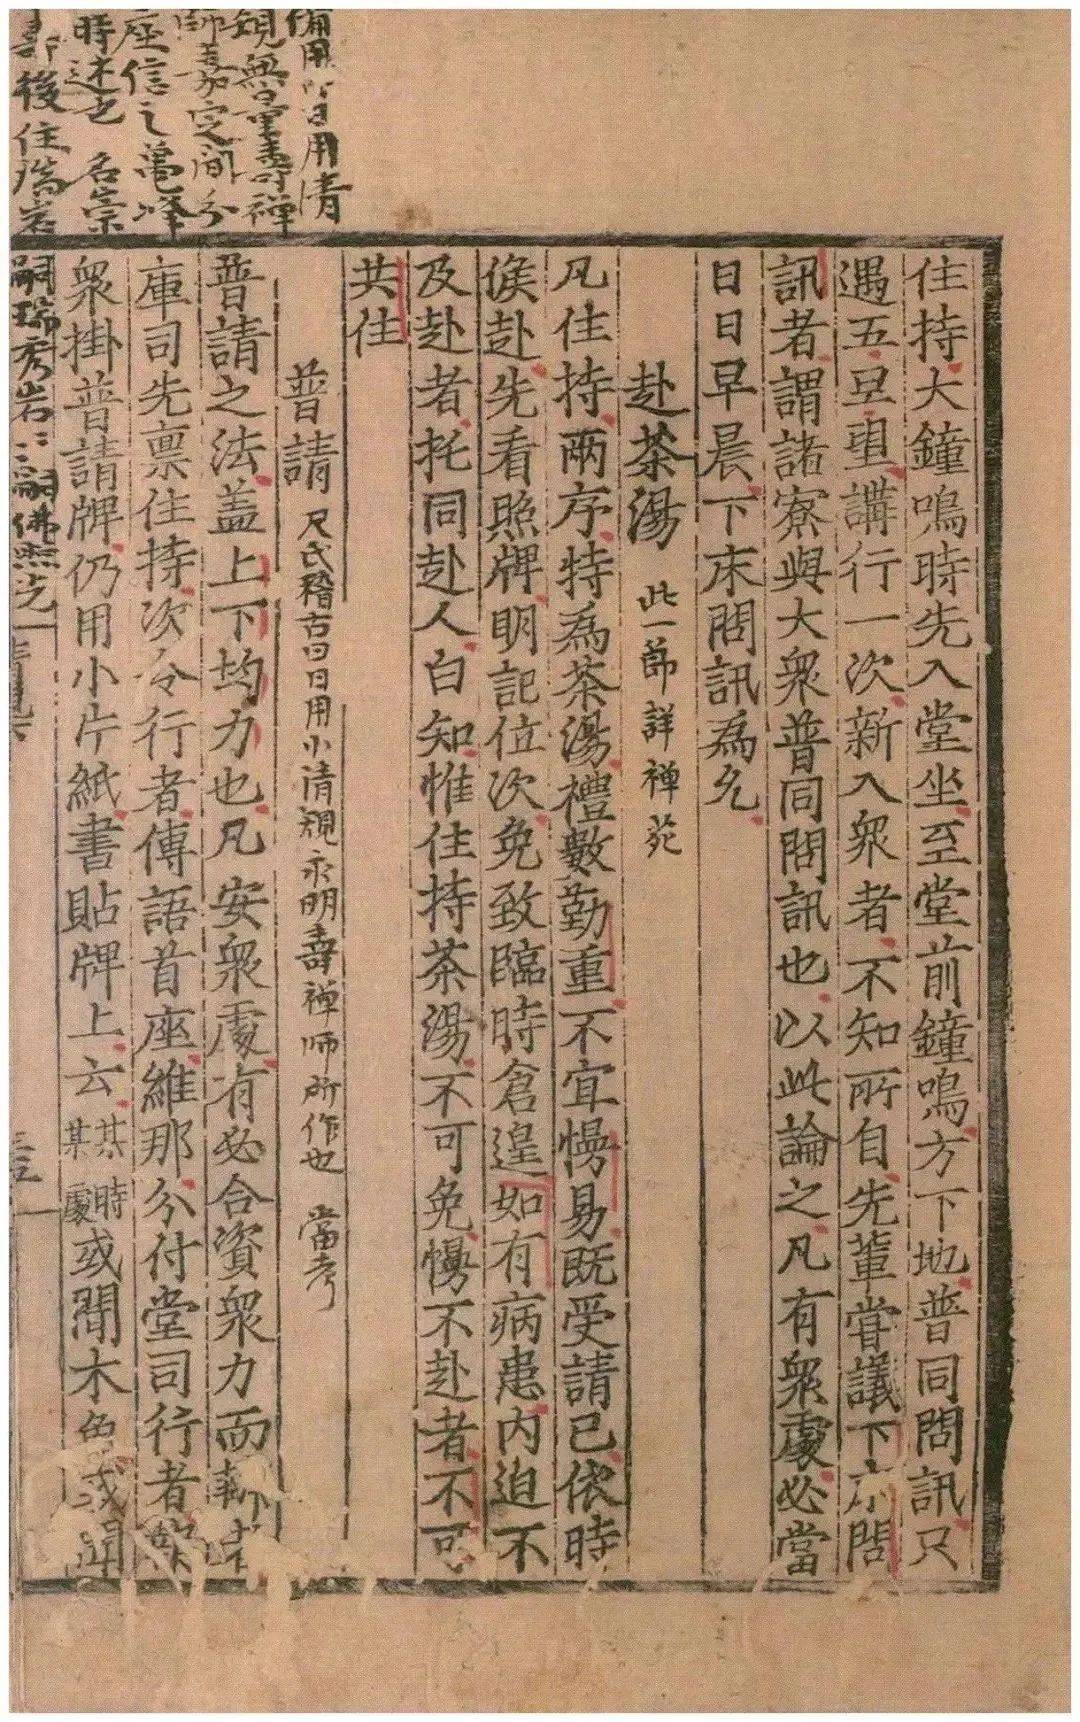 住持大鐘鳴時先入堂坐至堂前鐘鳴方下地普同問訊只
遇五旦望講行一次新入衆者不知所自先輩嘗議下床問
訊者謂諸寮與大衆普同問訊也以此論之凡有衆處必當
日日早晨下床問訊為允
赴茶湯 此一節詳禅苑
凡住持兩序特為茶湯禮數勤重不宜慢易既受請已依時
候赴先看照牌明記位次免致臨時倉遑如有病患内迫不
及赴者托同赴人白知惟住持茶湯不可免慢不赴者不可
共住
普請 尺氏稽古曰日用小清規永明壽禅师所作也 當考
普請之法盖上下均力也凡安衆處有必合資衆力而
庫司先禀住持次令行者傳語首座維那分付堂司行者
衆掛普請牌仍用小片紙書貼牌上云某時某處或聞木魚或聞
備用曰日用清
規無量壽禅
師嘉定間分
座信之龜峰
時述也 名宗
壽後住瑞岩
嗣瑞秀岩嗣佛照光